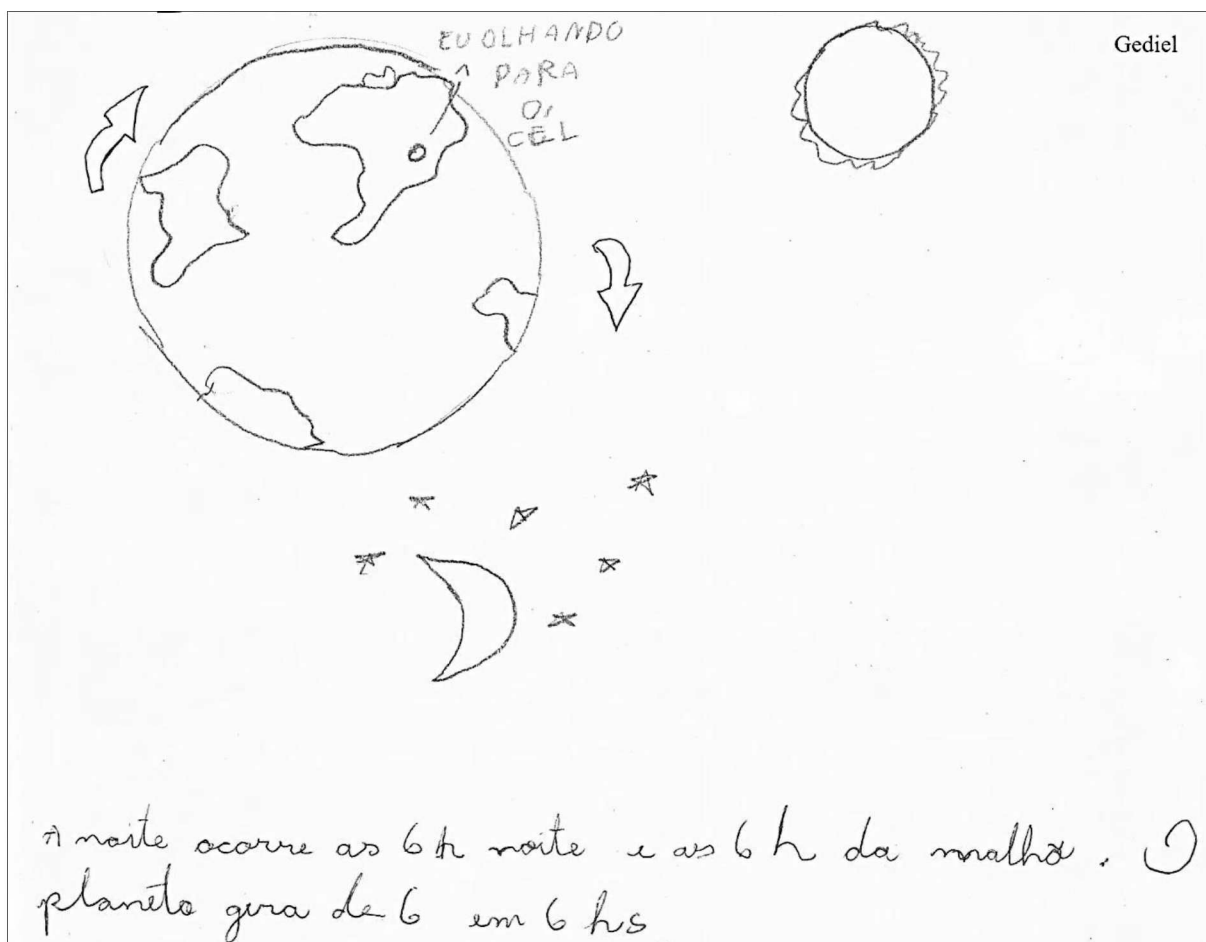 EU OLHANDO
PARA
O
CÉL
Gediel
A noite ocorre as 6 h noite e as 6 h da malhã. O
planeta gira de 6 em 6 hs